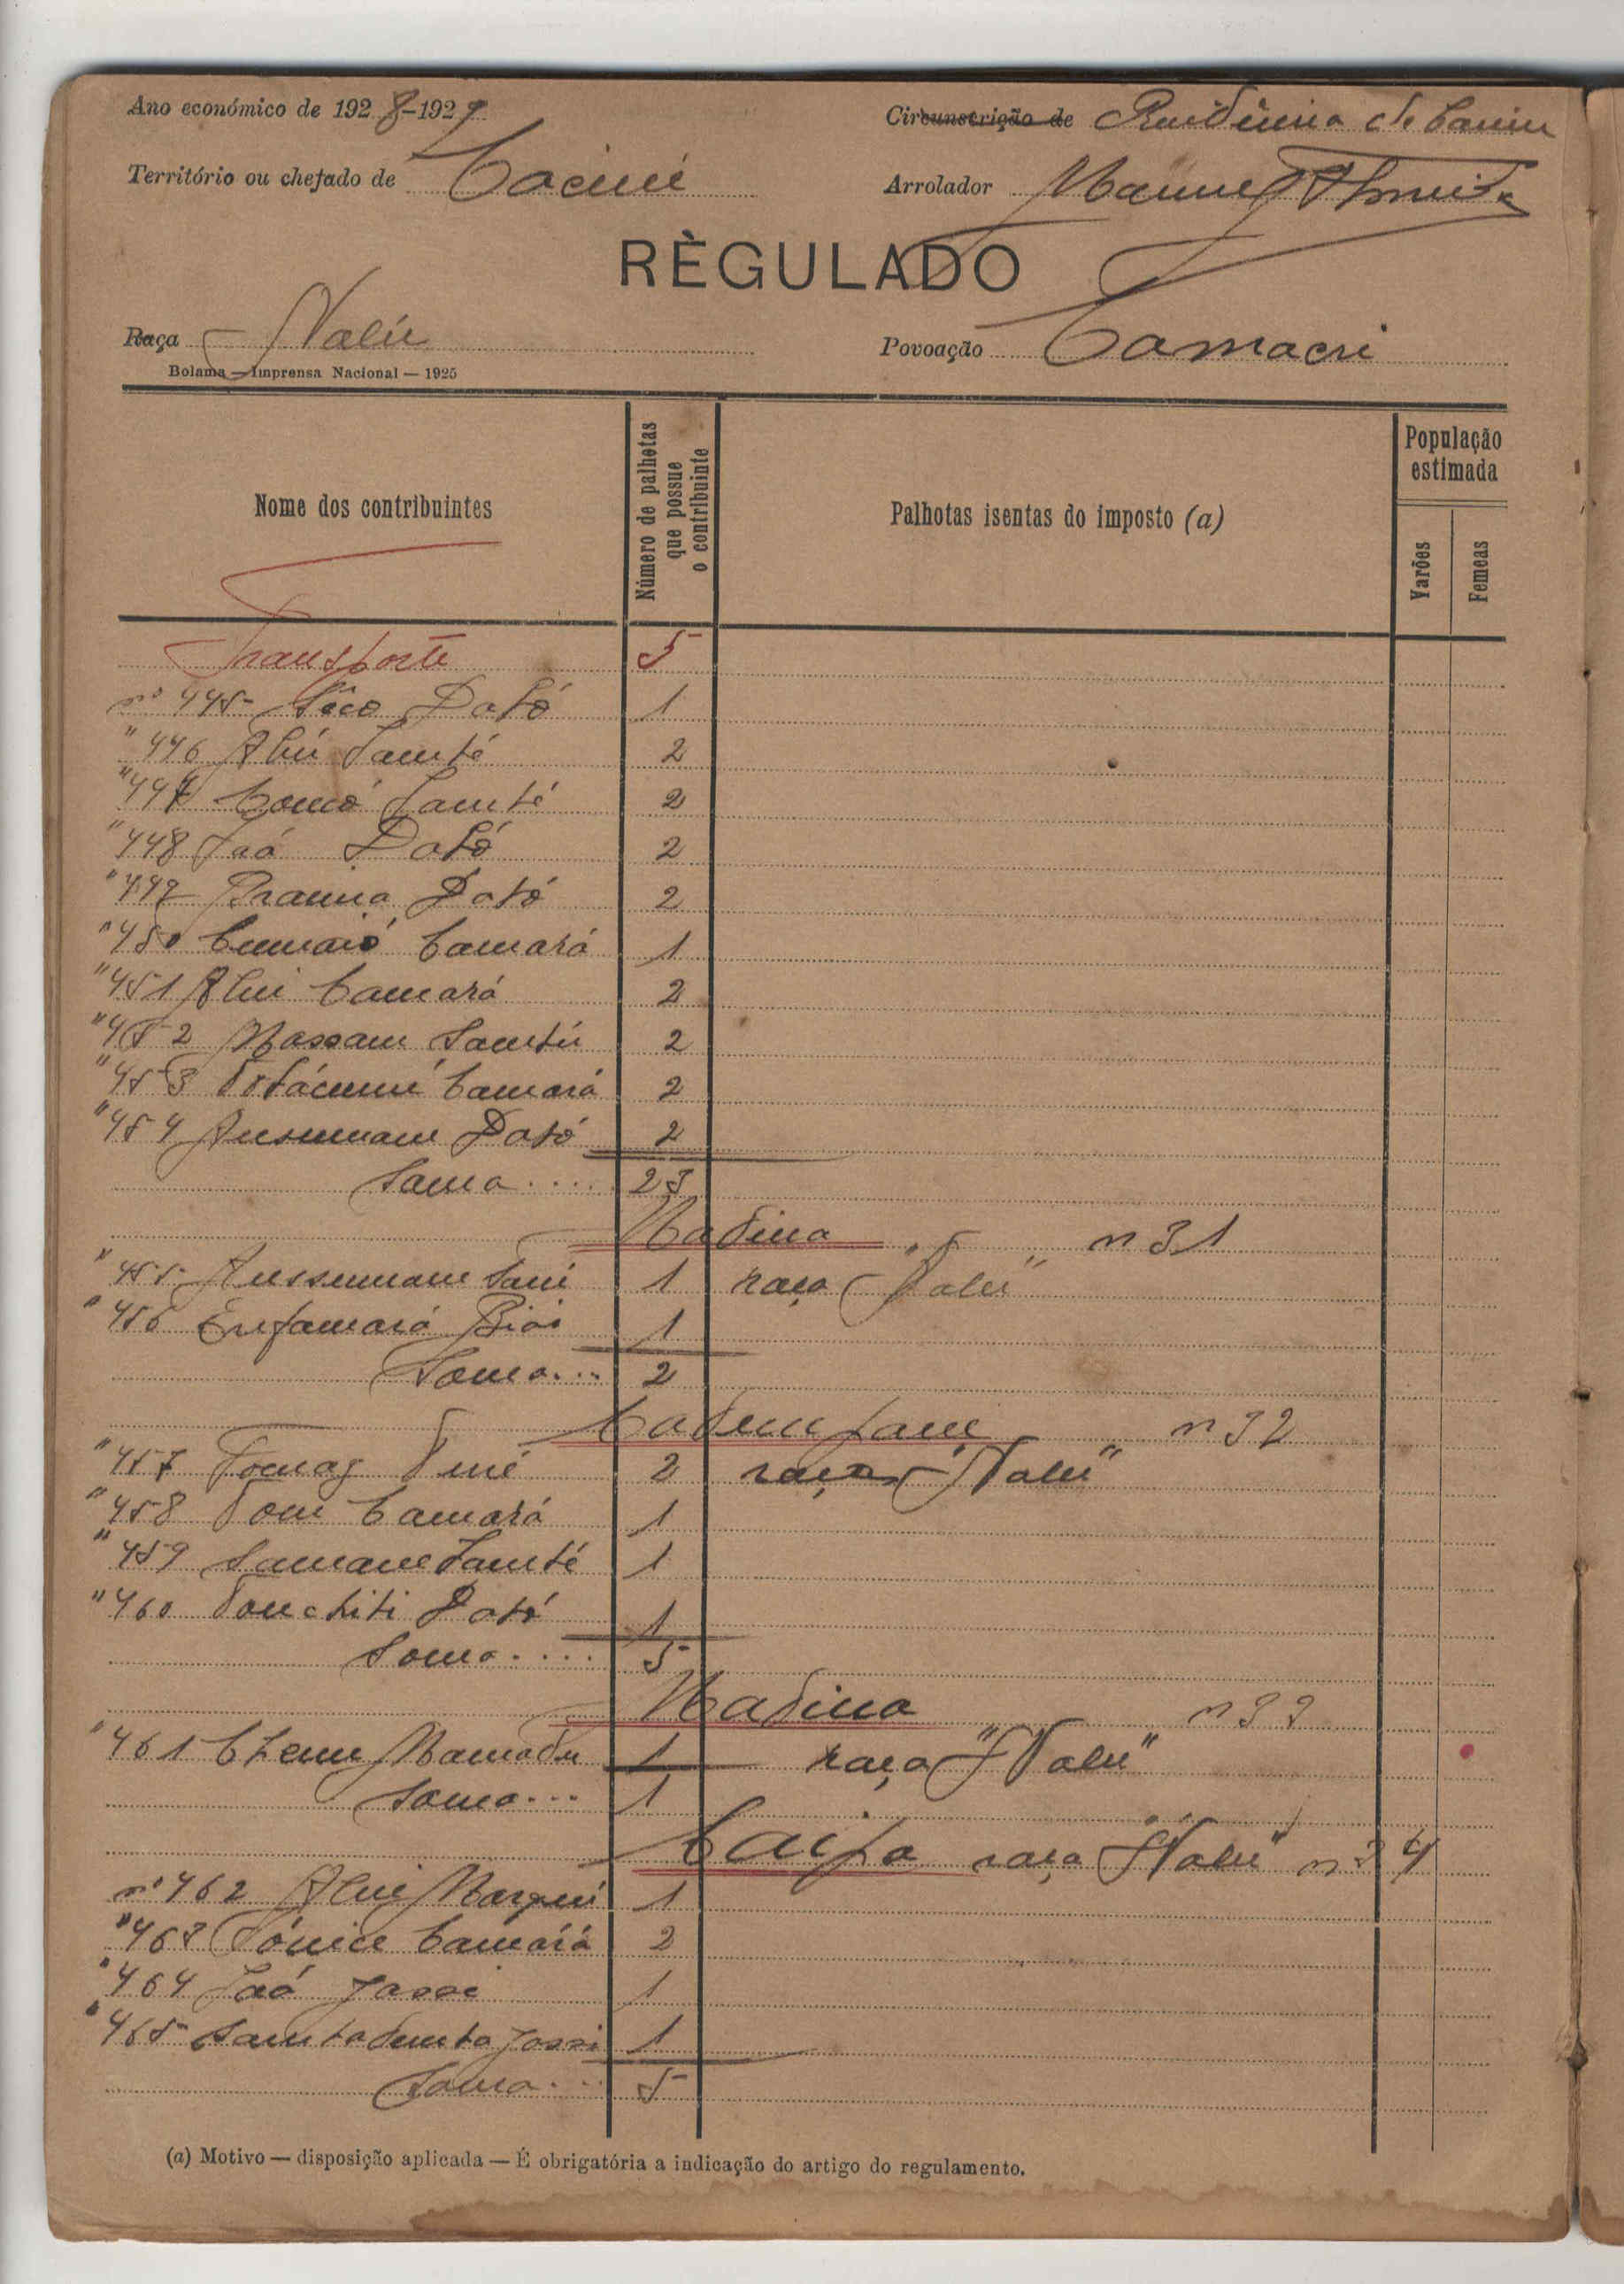 Ano económico de 1928-1929
Circunscrição de Residência de Cacine
Território ou chefado de Cacine
Arrolador Manuel
RÈGULADO
Raça Nalú
Povoação Camacri
Bolama — Imprensa Nacional — 1925
Nome dos contribuintes
Número de palhotas que possue o contribuinte
Palhotas isentas do imposto (a)
População estimada
Varões
Femeas
Transporte 5
nº 445 Séco Dabó 1
" 446 Aliú Santé 2
" 447 Comó Santé 2
" 448 Jaó Dabó 2
" 449 Braima Dabó 2
" 450 Camará 1
" 451 Alui Camará 2
" 452 Massam 2
" 453 Camará 2
" 454 Ansumane Dabó 2
Soma.... 23
Madina n 31
" 455 Anssumane Sané 1 raça "Nalú"
" 456 Enfamará Biai 1
Soma... 2
n 32
" 457 2 raça "Nalú"
" 458 Camará 1
" 459 Samane Santé 1
" 460 Dabó 1
Soma.... 5
Madina n 33
" 461 Mamadu 1 raça "Nalú"
Soma... 1
raça "Nalú" n 34
nº 462 Alui 1
" 463 Camará 2
" 464 Jaó Jassi 1
" 465 Jassi 1
Soma... 5
(a) Motivo — disposição aplicada — É obrigatória a indicação do artigo do regulamento.